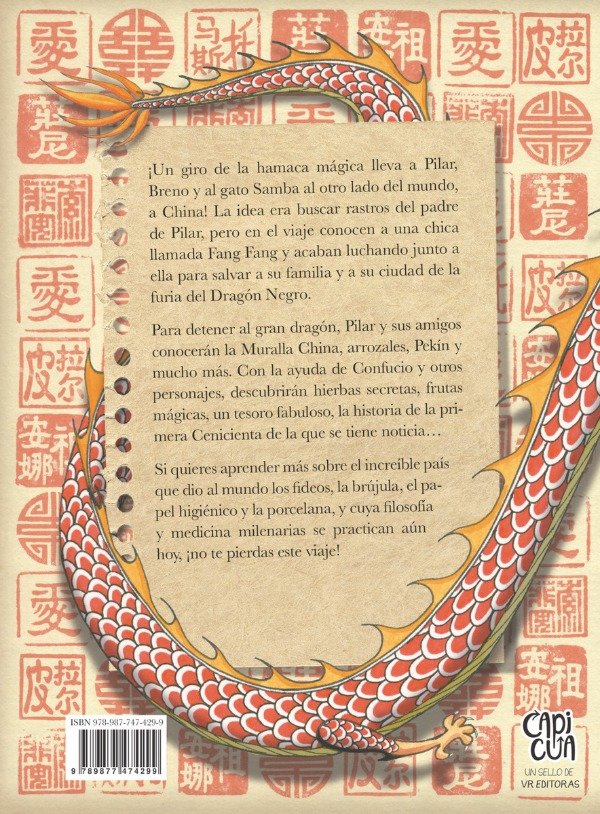 托马斯
莊
安祖
皮拉尔
莊尼
莊尼
¡Un giro de la hamaca mágica lleva a Pilar,
Breno y al gato Samba al otro lado del mundo,
a China! La idea era buscar rastros del padre
de Pilar, pero en el viaje conocen a una chica
llamada Fang Fang y acaban luchando junto a
ella para salvar a su familia y a su ciudad de la
furia del Dragón Negro.
Para detener al gran dragón, Pilar y sus amigos
conocerán la Muralla China, arrozales, Pekín y
mucho más. Con la ayuda de Confucio y otros
personajes, descubrirán hierbas secretas, frutas
mágicas, un tesoro fabuloso, la historia de la pri-
mera Cenicienta de la que se tiene noticia…
Si quieres aprender más sobre el increíble país
que dio al mundo los fideos, la brújula, el pa-
pel higiénico y la porcelana, y cuya filosofía
y medicina milenarias se practican aún
hoy, ¡no te pierdas este viaje!
皮拉尔
安娜祖
皮拉尔
安娜祖
ISBN 978-987-747-429-9
9789877474299
CAPI
CUA
UN SELLO DE
VR EDITORAS